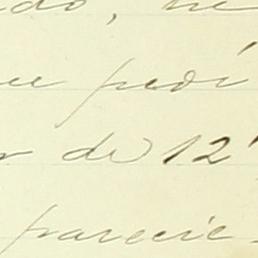 do, he
ue pedí
r de 12'
parecie